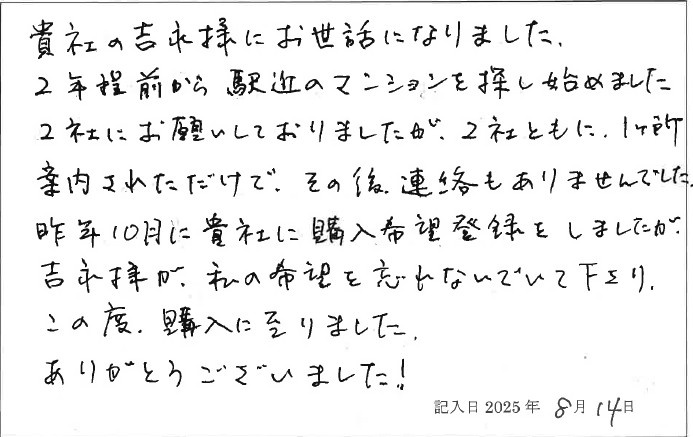 貴社の吉永様にお世話になりました.
2年程前から駅近のマンションを探し始めました
2社にお願いしておりましたが、2社ともに、1ヶ所
案内されただけで、その後、連絡もありませんでした.
昨年10月に貴社に購入希望登録をしましたが、
吉永様が、私の希望を忘れないでいて下さり、
この度、購入に至りました.
ありがとうございました!
記入日 2025 年 8月 14日